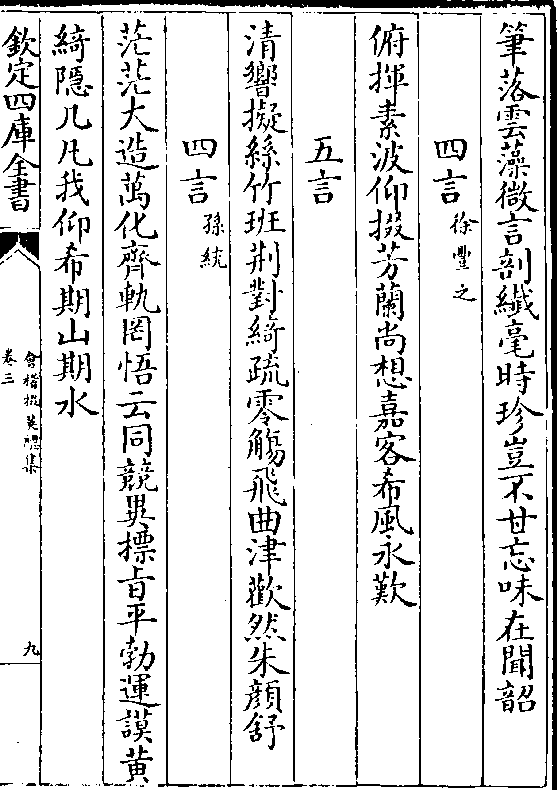 筆落雲藻微言剖纎毫時珍豈不甘忘味在聞韶
四言徐豐之
俯揮素波仰掇芳蘭尚想嘉客希風永歎
五言
清響擬絲竹班荆對綺疏零觴飛曲津歡然朱顔舒
四言孫統
茫茫大造萬化齊軌罔悟云同競異摽㫖平勃運謨黄
綺隠几凡我仰希期山期水
欽定四庫全書
會稽掇英總集
卷三
九